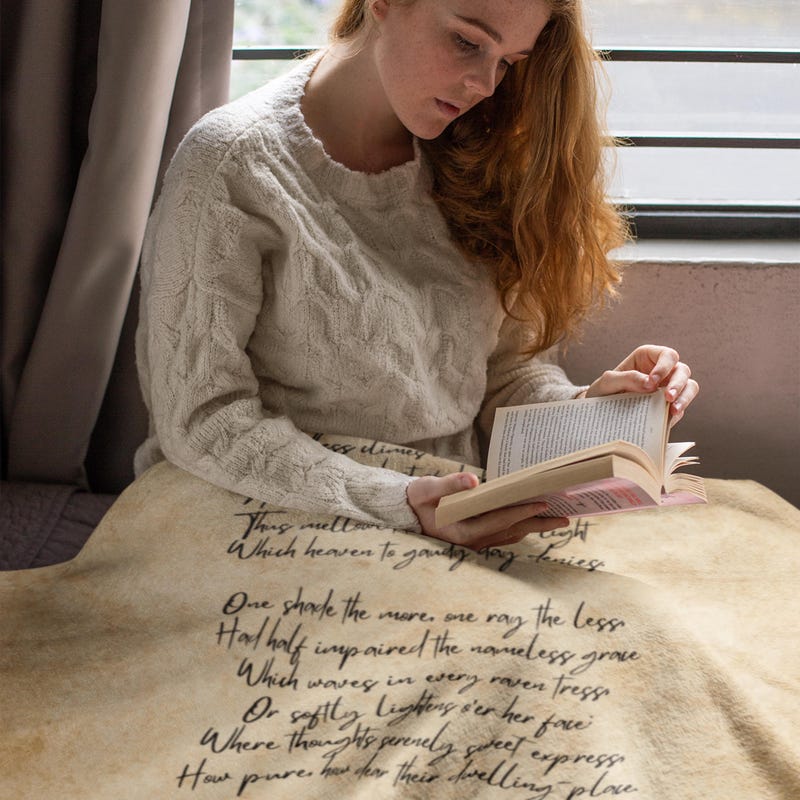 less climes
Thus mellow
light
Which heaven to gaudy day denies.
One shade the more, one ray the less,
Had half impaired the nameless grace
Which waves in every raven tress,
Or softly lightens o'er her face;
Where thoughts serenely sweet express,
How pure, how dear their dwelling-place.